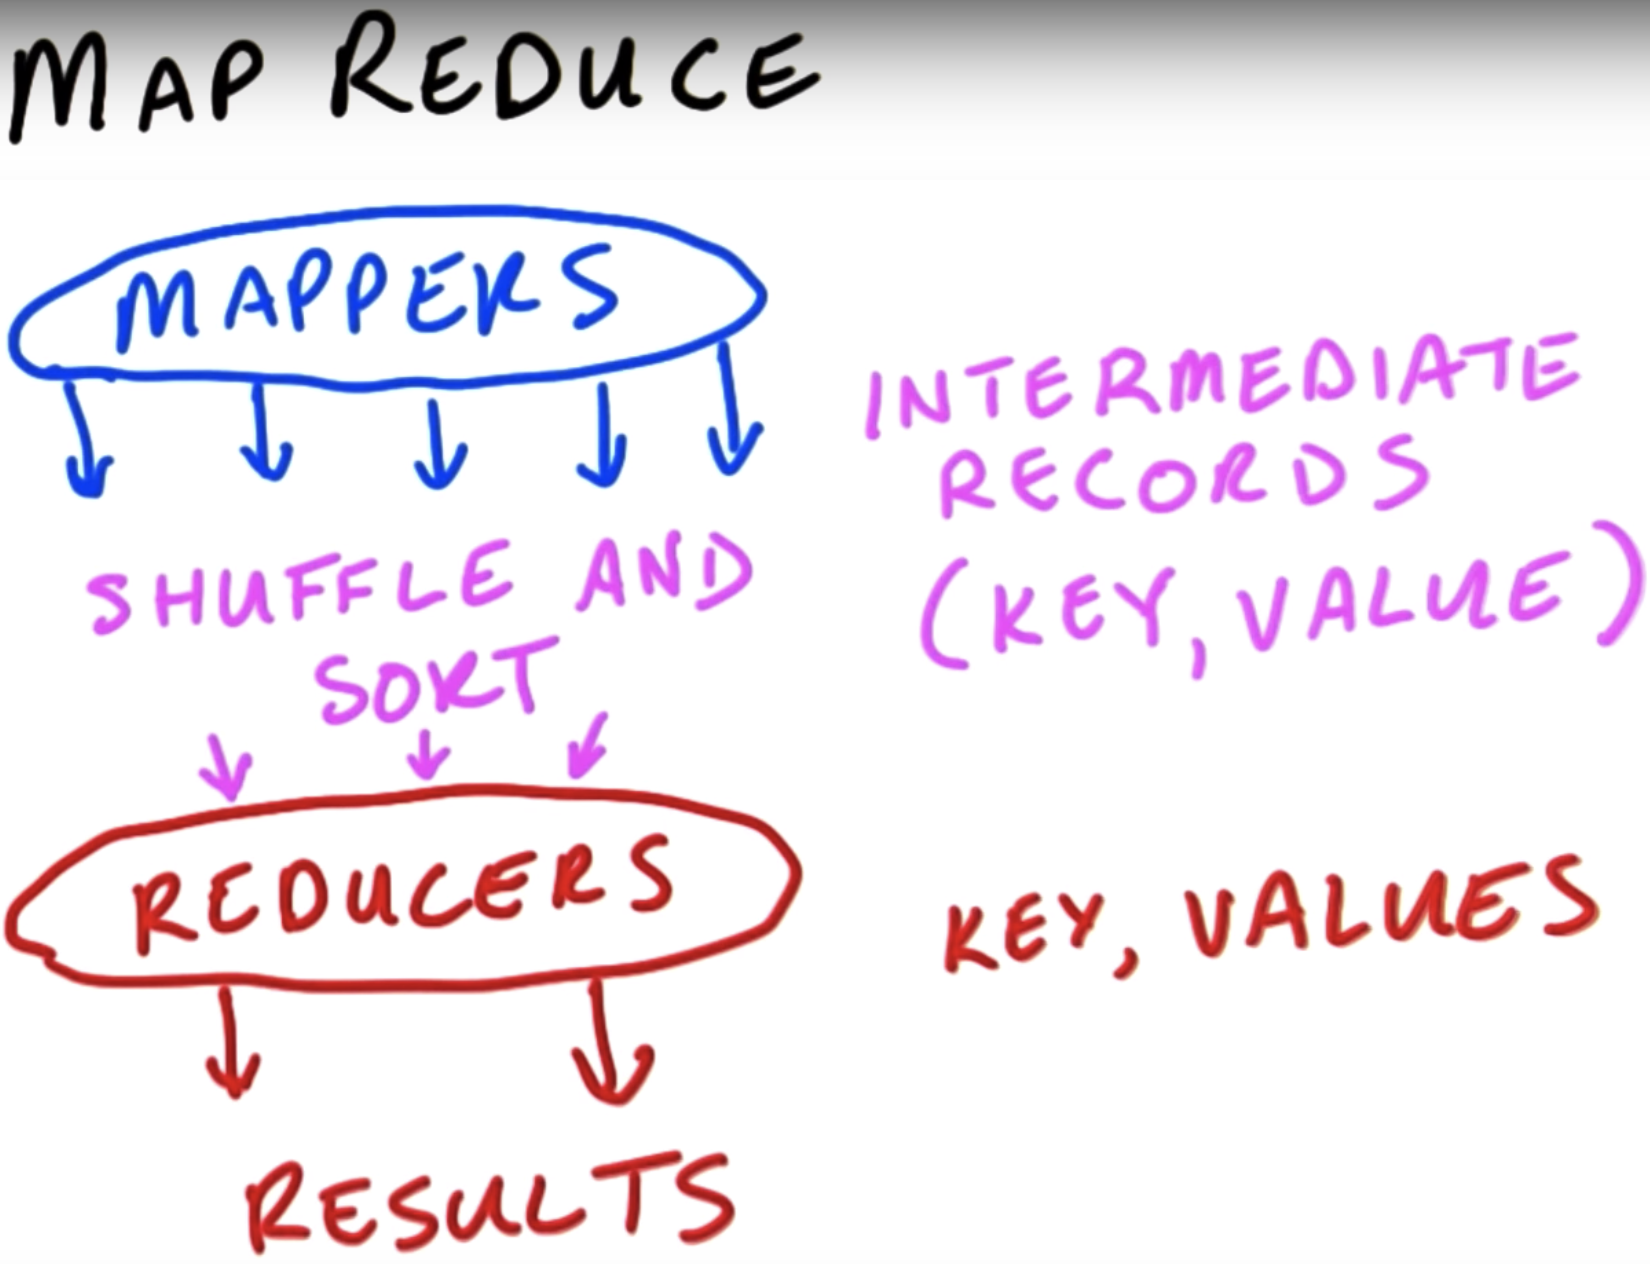 MAP REDUCE
MAPPERS
INTERMEDIATE
RECORDS
(KEY, VALUE)
SHUFFLE AND
SORT
REDUCERS
KEY, VALUES
RESULTS